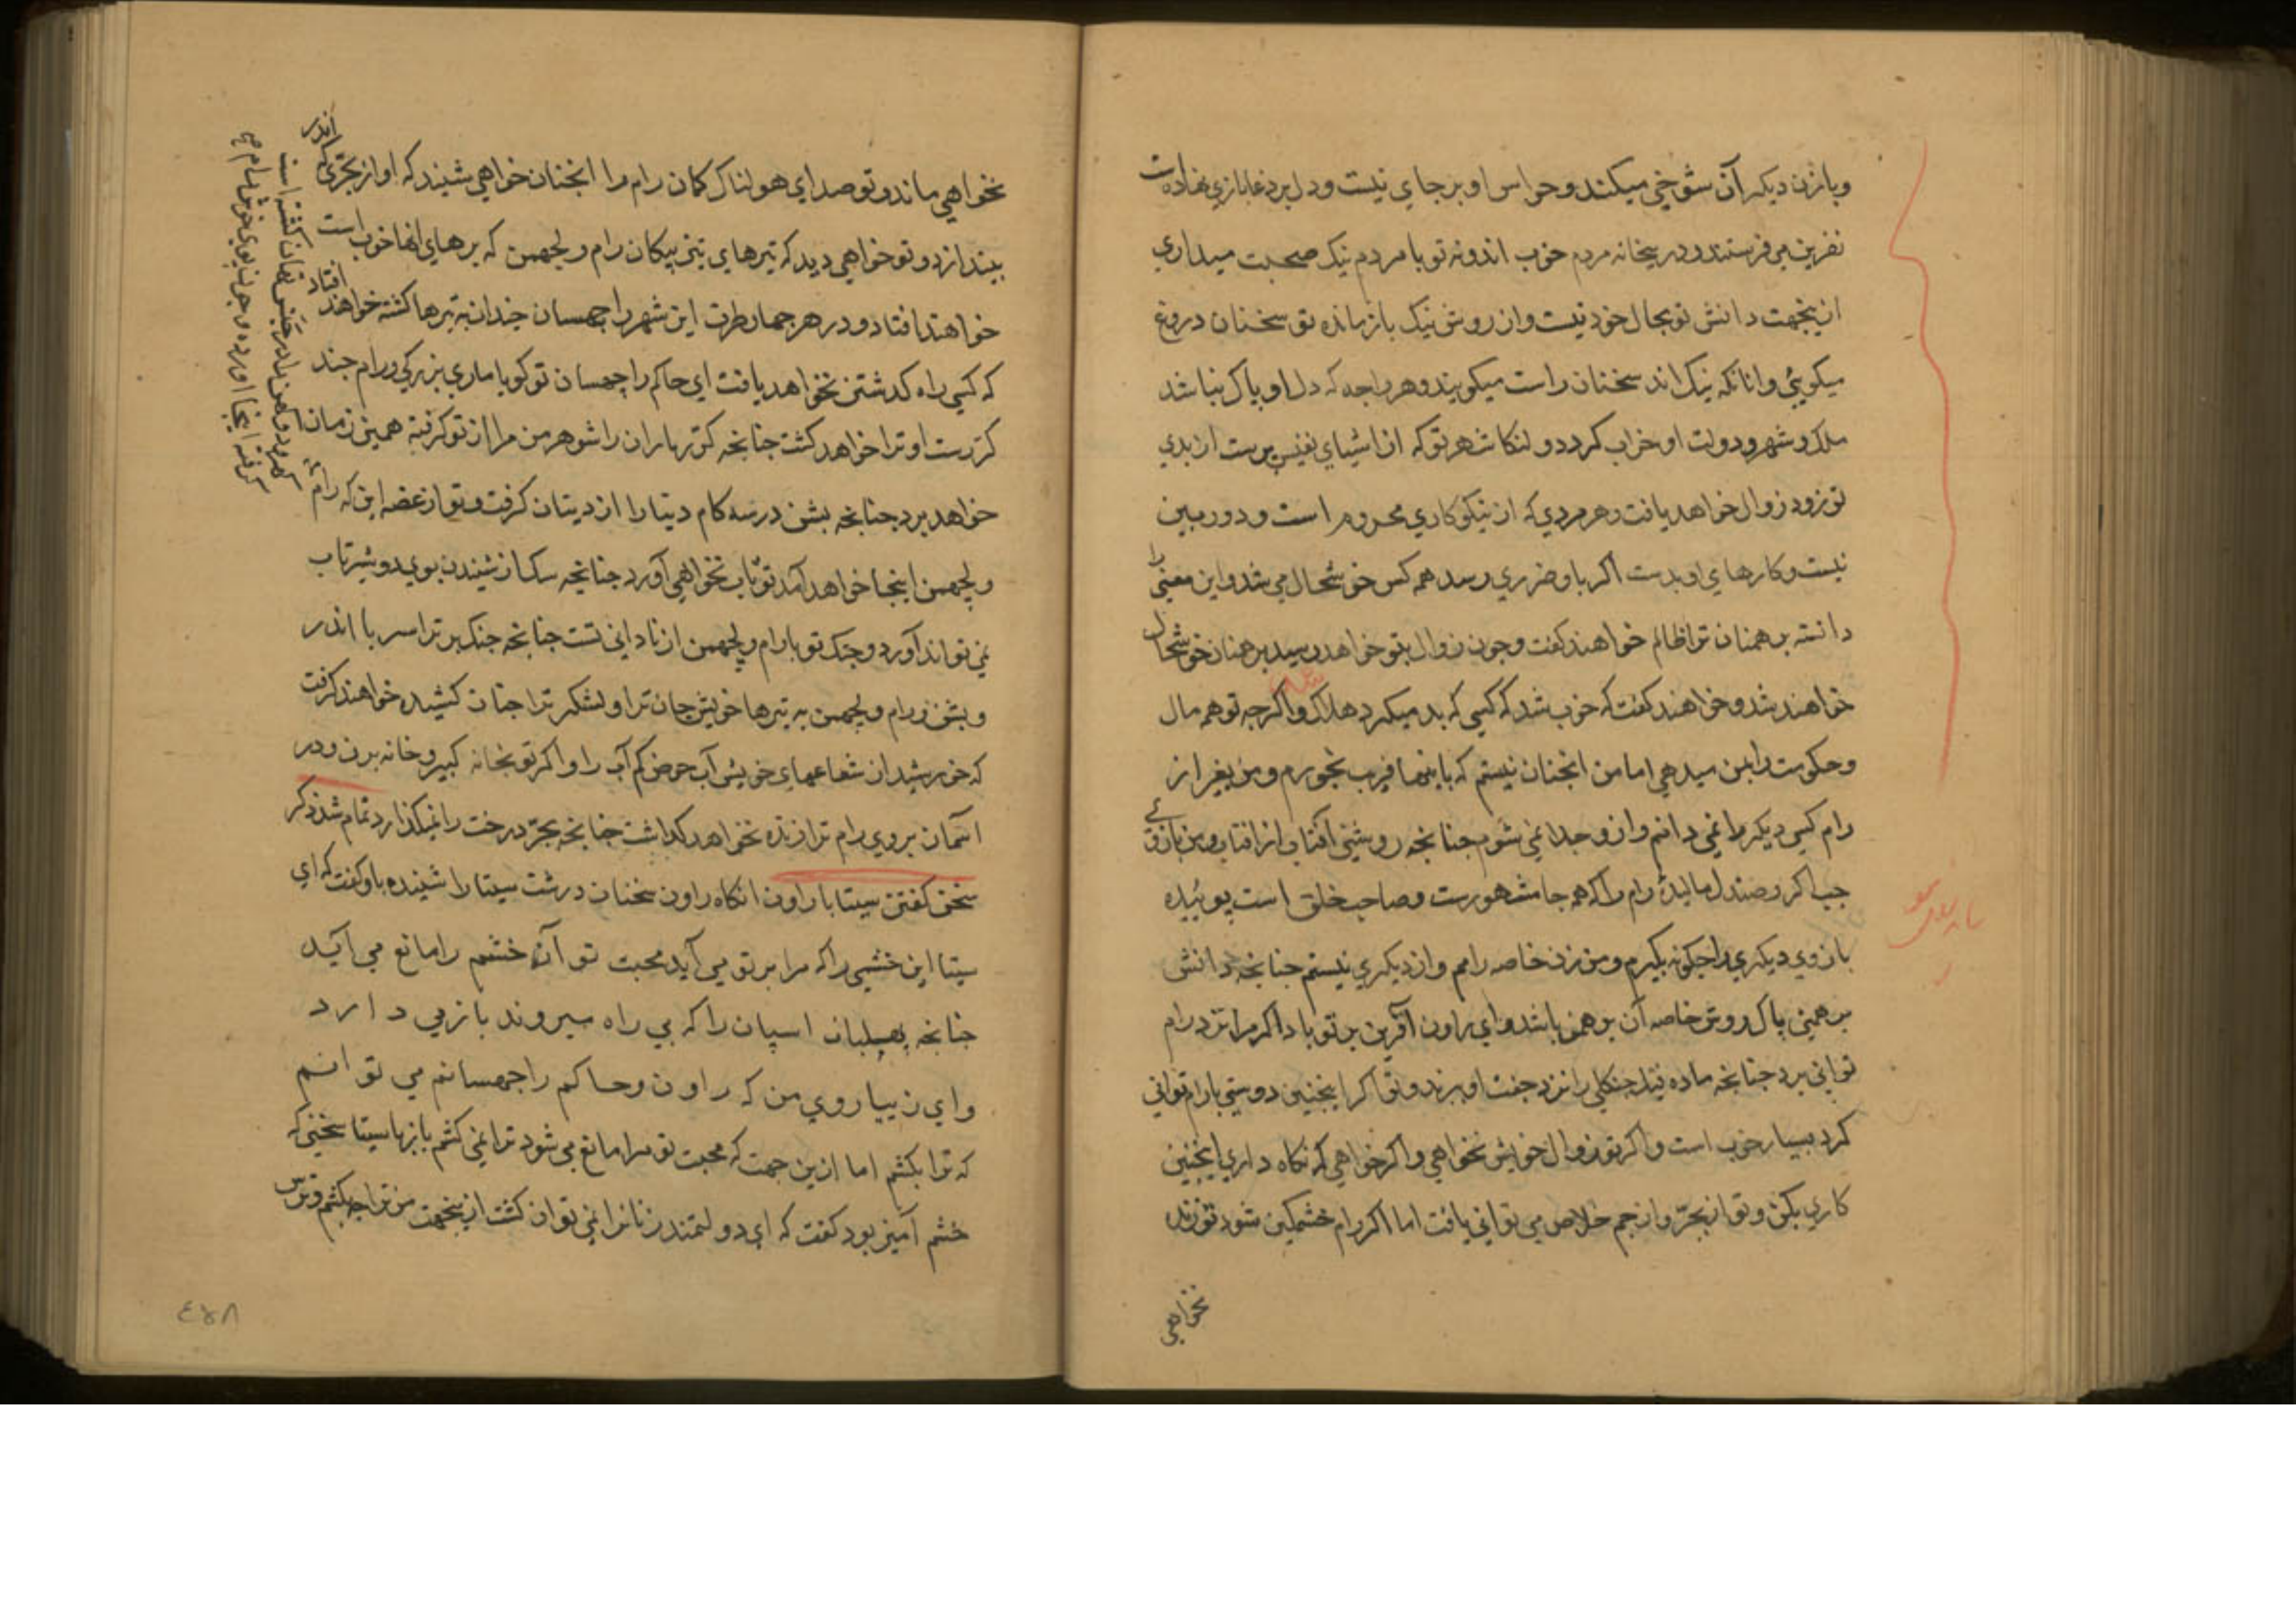 وبازن دیکر آن شوخی میکند و حواس او برجای نیست و دل بر دغابازی نهاده است
نفرین می فرستند و درینخانه مردم خوب اند و نه تو با مردم نیک صحبت میداری
ازینجهت دانش تو بحال خود نیست و از روش نیک باز مانده تو سخنان دروغ
میکویی و انانکه نیک اند سخنان راست میکویند و هر راجه که دل او پاک نباشد
ملک و شهر و دولت او خراب کردد و لنکا شهر تو که از اشیای نفیس پرست از بدی
تو زود زوال خواهد یافت و هر مردی که از نیکوکاری محروم است و دوربین
نیست و کارهای او بدست اکر باو ضرری رسد همه کس خوشحال می شد و این معنی را
دانسته برهمنان ترا ظالم خواهند کفت و چون زوال بتو خواهد رسید برهمنان خوشحال
خواهند شد و خواهند کفت که خوب شد که کسی که بد میکرد هلاک و اکرچه تو همه مال
و حکومت را بمن میدهی اما من انچنان نیستم که باینها فریب بخورم و من بغیر از
رام کسی دیکر را نمی دانم و از و جدا نمی شوم چنانچه روشنی آفتاب از افتاب و من بازوی
چپ اکر و صندل مالیده رام را که همه جا مشهورست و صاحب خلق است پوییده
بازوی دیکری را چکونه بکیرم و من زن خاصه رامم و از دیکری نیستم چنانچه دانش
برهمنی پاک روش خاصه آن برهمن باشد و ای راون آفرین بر تو باد اکر مرا نزد رام
توانی برد چنانچه ماده فیل جنکلی را نزد جفت او برند و تو اکر اینچنین دوستی با رام توانی
کرد بسیار خوب است و اکر تو زوال خویش نخواهی و اکر خواهی که نکاه داری اینچنین
کاری بکن و تو از بجر و از جم خلاص می توانی یافت اما اکر رام خشمکین شود تو زنده
نخواهی
نخواهی ماند و تو صدای هولناک کمان رام را انچنان خواهی شنید که اواز بجری که اندر
بیندازد و تو خواهی دید که تیرهای تیز پیکان رام و لچهمن که برهای انها خوب است
خواهند افتاد و در هر چهار طرف این شهر راچهسان چندان به تیرها کشته خواهند افتاد
که کسی راه کذشتن نخواهد یافت ای حاکم راچهسان تو کویا ماری بزرکی و رام چند
کررست او ترا خواهد کشت چنانچه کرر ماران را شوهر من مرا از تو کرفته همین زمان
خواهد برد چنانچه بشن در سه کام دیتا را از دیتان کرفت و تو از غصه این که رام
و لچهمن اینجا خواهد آمد تو تاب نخواهی آورد چنانچه سک از شنیدن بوی دو شیر تاب
نمی تواند آورد و جنک تو با رام و لچهمن از نادانی تست چنانچه جنک برتراسر با اندر
و بشن و رام و لچهمن به تیرها خویش جان ترا و لشکر ترا چنان کشیده خواهند کرفت
که خورشید از شعاعهای خویش آب حوض کم آب را و اکر تو بخانه کبیر و خانه برن و در
آسمان بروی رام ترا زنده نخواهد کذاشت چنانچه بجر درخت را نمیکذارد تمام شد ذکر
سخن کفتن سیتا با راون انکاه راون سخنان درشت سیتا را شنیده باو کفت که ای
سیتا این خشمی را که مرا بر تو می آید محبت تو آن خشم را مانع می آید
چنانچه بهیلبان اسپان را که بی راه میروند باز می دارد
و ای زیباروی من که راون و حاکم راچهسانم می توانم
که ترا بکشم اما ازین جهت که محبت تو مرا مانع می شود ترا نمی کشم باز بها سیتا سخنی که
خشم آمیز بود کفت که ای دولتمند زنان را نمی توان کشت ازینجهت من ترا چه بکشم و ترس
٤٧٨